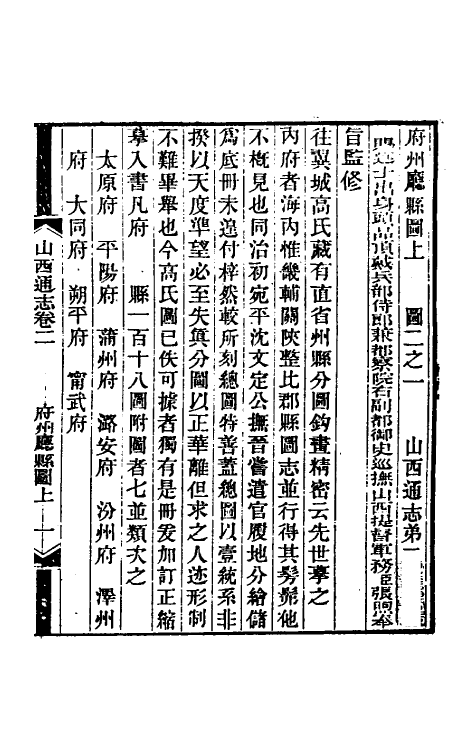 府州廳縣圖上　圖二之一　山西通志弟一
賜進士出身頭品頂戴兵部侍郎兼都察院右副都御史巡撫山西提督軍務臣張煦奉
旨監修
往翼城高氏藏有直省州縣分圖鉤畫精密云先世摹之
內府者海內惟畿輔關陜整比郡縣圖志並行得其髣髴他
不槪見也同治初宛平沈文定公撫晉嘗遣官履地分繪儲
爲底冊未遑付梓然較所刻總圖特善蓋總圖以壹統系非
揆以天度準望必至失眞分圖以正華離但求之人迹形制
不難畢舉也今高氏圖已佚可據者獨有是冊爰加訂正縮
摹入書凡府　縣一百十八圖附圖者七並類次之
太原府　平陽府　蒲州府　潞安府　汾州府　澤州
府　大同府　朔平府　甯武府
山西通志卷二　府州廳縣圖上　一